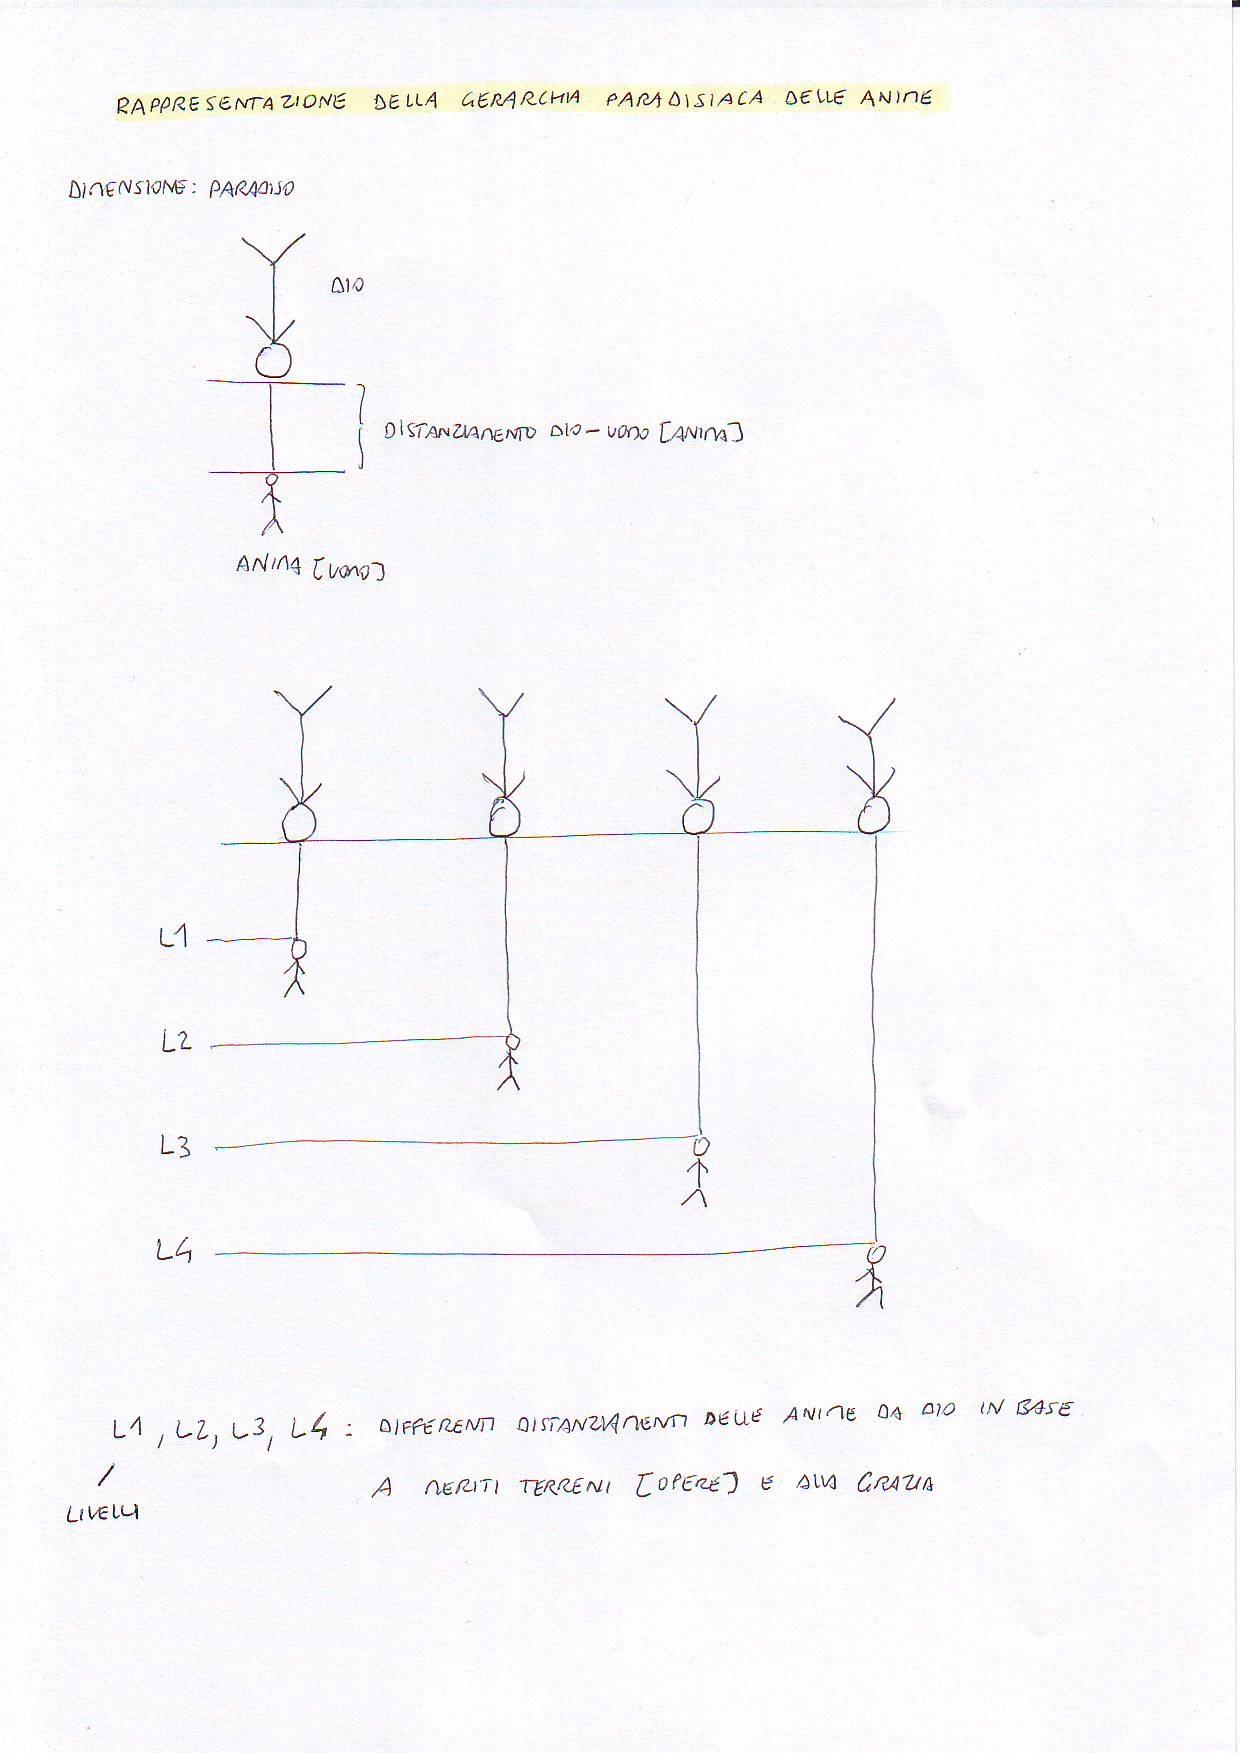 RAPPRESENTAZIONE DELLA GERARCHIA PARADISIACA DELLE ANIME
DIMENSIONE: PARADISO
DIO
DISTANZIAMENTO DIO-UOMO [ANIMA]
ANIMA [UOMO]
L1
L2
L3
L4
L1, L2, L3, L4 : DIFFERENTI DISTANZIAMENTI DELLE ANIME DA DIO IN BASE
A MERITI TERRENI [OPERE] E ALLA GRAZIA
LIVELLI